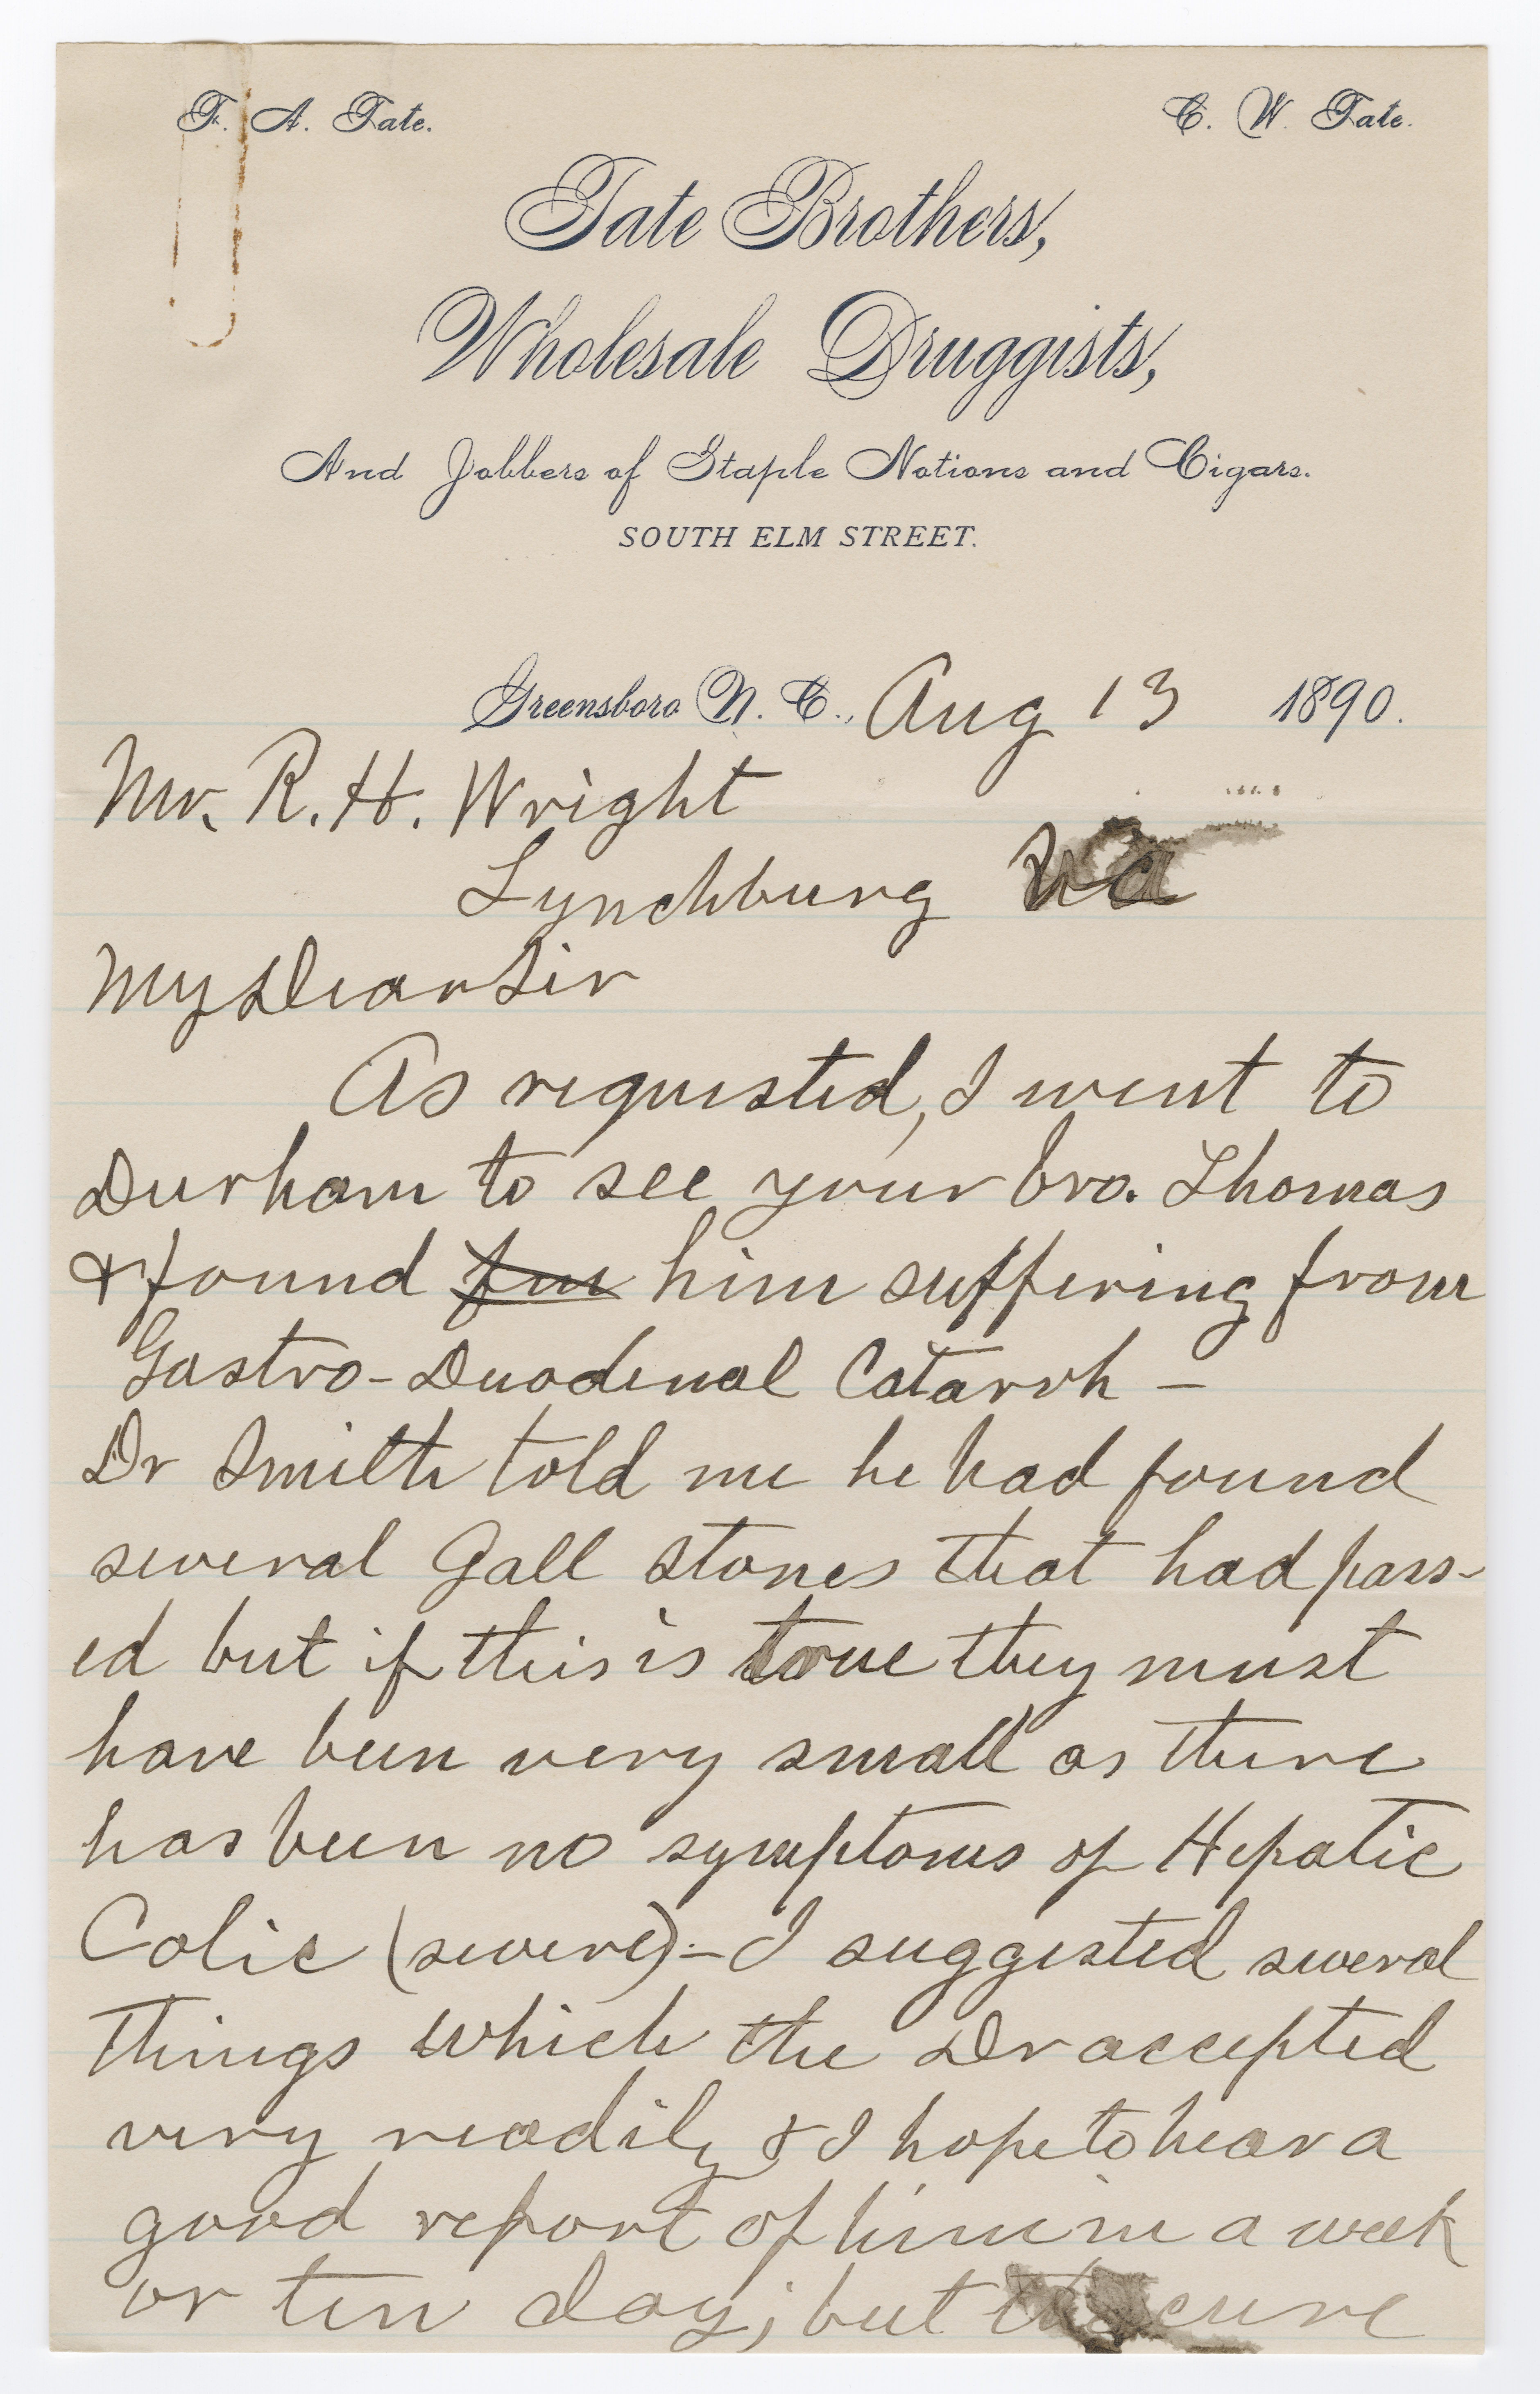 F. A. Tate.
C. W. Tate.
Tate Brothers,
Wholesale Druggists,
And Jobbers of Staple Notions and Cigars.
SOUTH ELM STREET.
Greensboro N. C., Aug 13 1890.
Mr. R. H. Wright
Lynchburg Va
My Dear Sir
As requested, I went to
Durham to see your bro. Thomas
& found him suffering from
Gastro-Duodenal Catarrh –
Dr Smith told me he had found
several Gall stones that had pass-
ed but if this is true they must
have been very small as there
has been no symptoms of Hepatic
Colic (severe) – I suggested several
things which the Dr accepted
very readily & I hope to hear a
good report of him in a week
or ten day; but cure